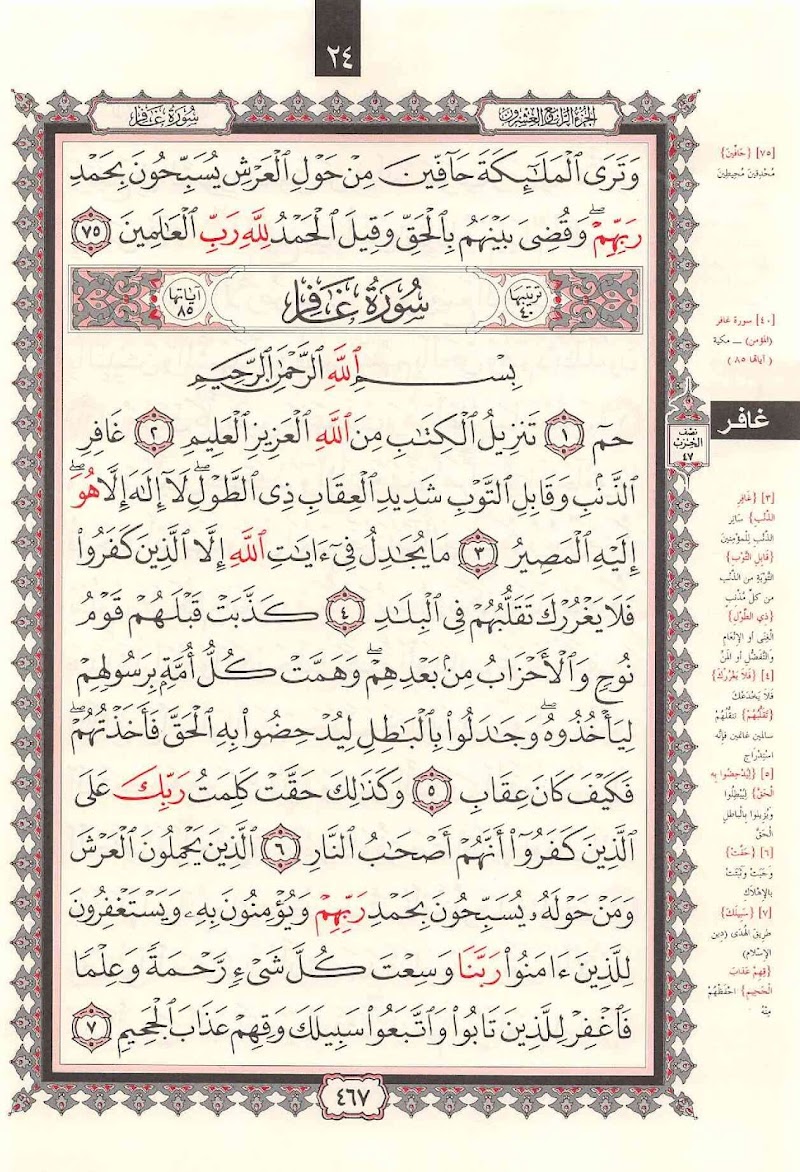 ٢٤
سُورَةُ غَافِرٍ
الجُزْءُ الرَّابِعُ وَالعِشْرُونَ
وَتَرَى ٱلْمَلَٰٓئِكَةَ حَآفِّينَ مِنْ حَوْلِ ٱلْعَرْشِ يُسَبِّحُونَ بِحَمْدِ
رَبِّهِمْ ۖ وَقُضِىَ بَيْنَهُم بِٱلْحَقِّ وَقِيلَ ٱلْحَمْدُ لِلَّهِ رَبِّ ٱلْعَٰلَمِينَ ٧٥
ترتيبها ٤٠
سُورَةُ غَافِرٍ
اياتها ٨٥
بِسْمِ ٱللَّهِ ٱلرَّحْمَٰنِ ٱلرَّحِيمِ
حمٓ ١ تَنزِيلُ ٱلْكِتَٰبِ مِنَ ٱللَّهِ ٱلْعَزِيزِ ٱلْعَلِيمِ ٢ غَافِرِ
ٱلذَّنۢبِ وَقَابِلِ ٱلتَّوْبِ شَدِيدِ ٱلْعِقَابِ ذِى ٱلطَّوْلِ ۖ لَآ إِلَٰهَ إِلَّا هُوَ ۖ
إِلَيْهِ ٱلْمَصِيرُ ٣ مَا يُجَٰدِلُ فِىٓ ءَايَٰتِ ٱللَّهِ إِلَّا ٱلَّذِينَ كَفَرُوا۟
فَلَا يَغْرُرْكَ تَقَلُّبُهُمْ فِى ٱلْبِلَٰدِ ٤ كَذَّبَتْ قَبْلَهُمْ قَوْمُ
نُوحٍ وَٱلْأَحْزَابُ مِنۢ بَعْدِهِمْ ۖ وَهَمَّتْ كُلُّ أُمَّةٍۭ بِرَسُولِهِمْ
لِيَأْخُذُوهُ ۖ وَجَٰدَلُوا۟ بِٱلْبَٰطِلِ لِيُدْحِضُوا۟ بِهِ ٱلْحَقَّ فَأَخَذْتُهُمْ ۖ
فَكَيْفَ كَانَ عِقَابِ ٥ وَكَذَٰلِكَ حَقَّتْ كَلِمَتُ رَبِّكَ عَلَى
ٱلَّذِينَ كَفَرُوٓا۟ أَنَّهُمْ أَصْحَٰبُ ٱلنَّارِ ٦ ٱلَّذِينَ يَحْمِلُونَ ٱلْعَرْشَ
وَمَنْ حَوْلَهُۥ يُسَبِّحُونَ بِحَمْدِ رَبِّهِمْ وَيُؤْمِنُونَ بِهِۦ وَيَسْتَغْفِرُونَ
لِلَّذِينَ ءَامَنُوا۟ رَبَّنَا وَسِعْتَ كُلَّ شَىْءٍ رَّحْمَةً وَعِلْمًا
فَٱغْفِرْ لِلَّذِينَ تَابُوا۟ وَٱتَّبَعُوا۟ سَبِيلَكَ وَقِهِمْ عَذَابَ ٱلْجَحِيمِ ٧
٤٦٧
[٧٥] {حَافِّينَ}
مُحْدِقِينَ مُحِيطِينَ
[٤٠] سورة غافر
(المؤمن) ــ مكية
(آياتها ٨٥)
غافر
نصف
الحزب
٤٧
[٣] {غَافِرِ
الذَّنْبِ} سَاتِرِ
الذَّنْبِ لِلْمُؤْمِنِينَ
{قَابِلِ التَّوْبِ}
التَّوْبَةِ من الذَّنْبِ
من كلِّ مُذْنِبٍ
{ذِي الطَّوْلِ}
الْغِنَى أو الإِنْعَامِ
وَالتَّفَضُّلِ أو الْمَنِّ
[٤] {فَلاَ يَغْرُرْكَ}
فَلاَ يَخْدَعْكَ
{تَقَلُّبُهُمْ} تَنَقُّلُهُمْ
سالمين غانمين فإنَّه
اسْتِدْرَاج
[٥] {لِيُدْحِضُوا بِهِ
الْحَقَّ} لِيُبْطِلُوا
وَيُزِيلُوا بِالْبَاطِلِ
الْحَقَّ
[٦] {حَقَّتْ}
وَجَبَتْ وَثَبَتَتْ
بِالإِهْلاَكِ
[٧] {سَبِيلَكَ}
طَرِيقَ الْهُدَى (دين
الإِسْلاَمِ)
{قِهِمْ عَذَابَ
الْجَحِيمِ} احْفَظْهُمْ
مِنْهُ